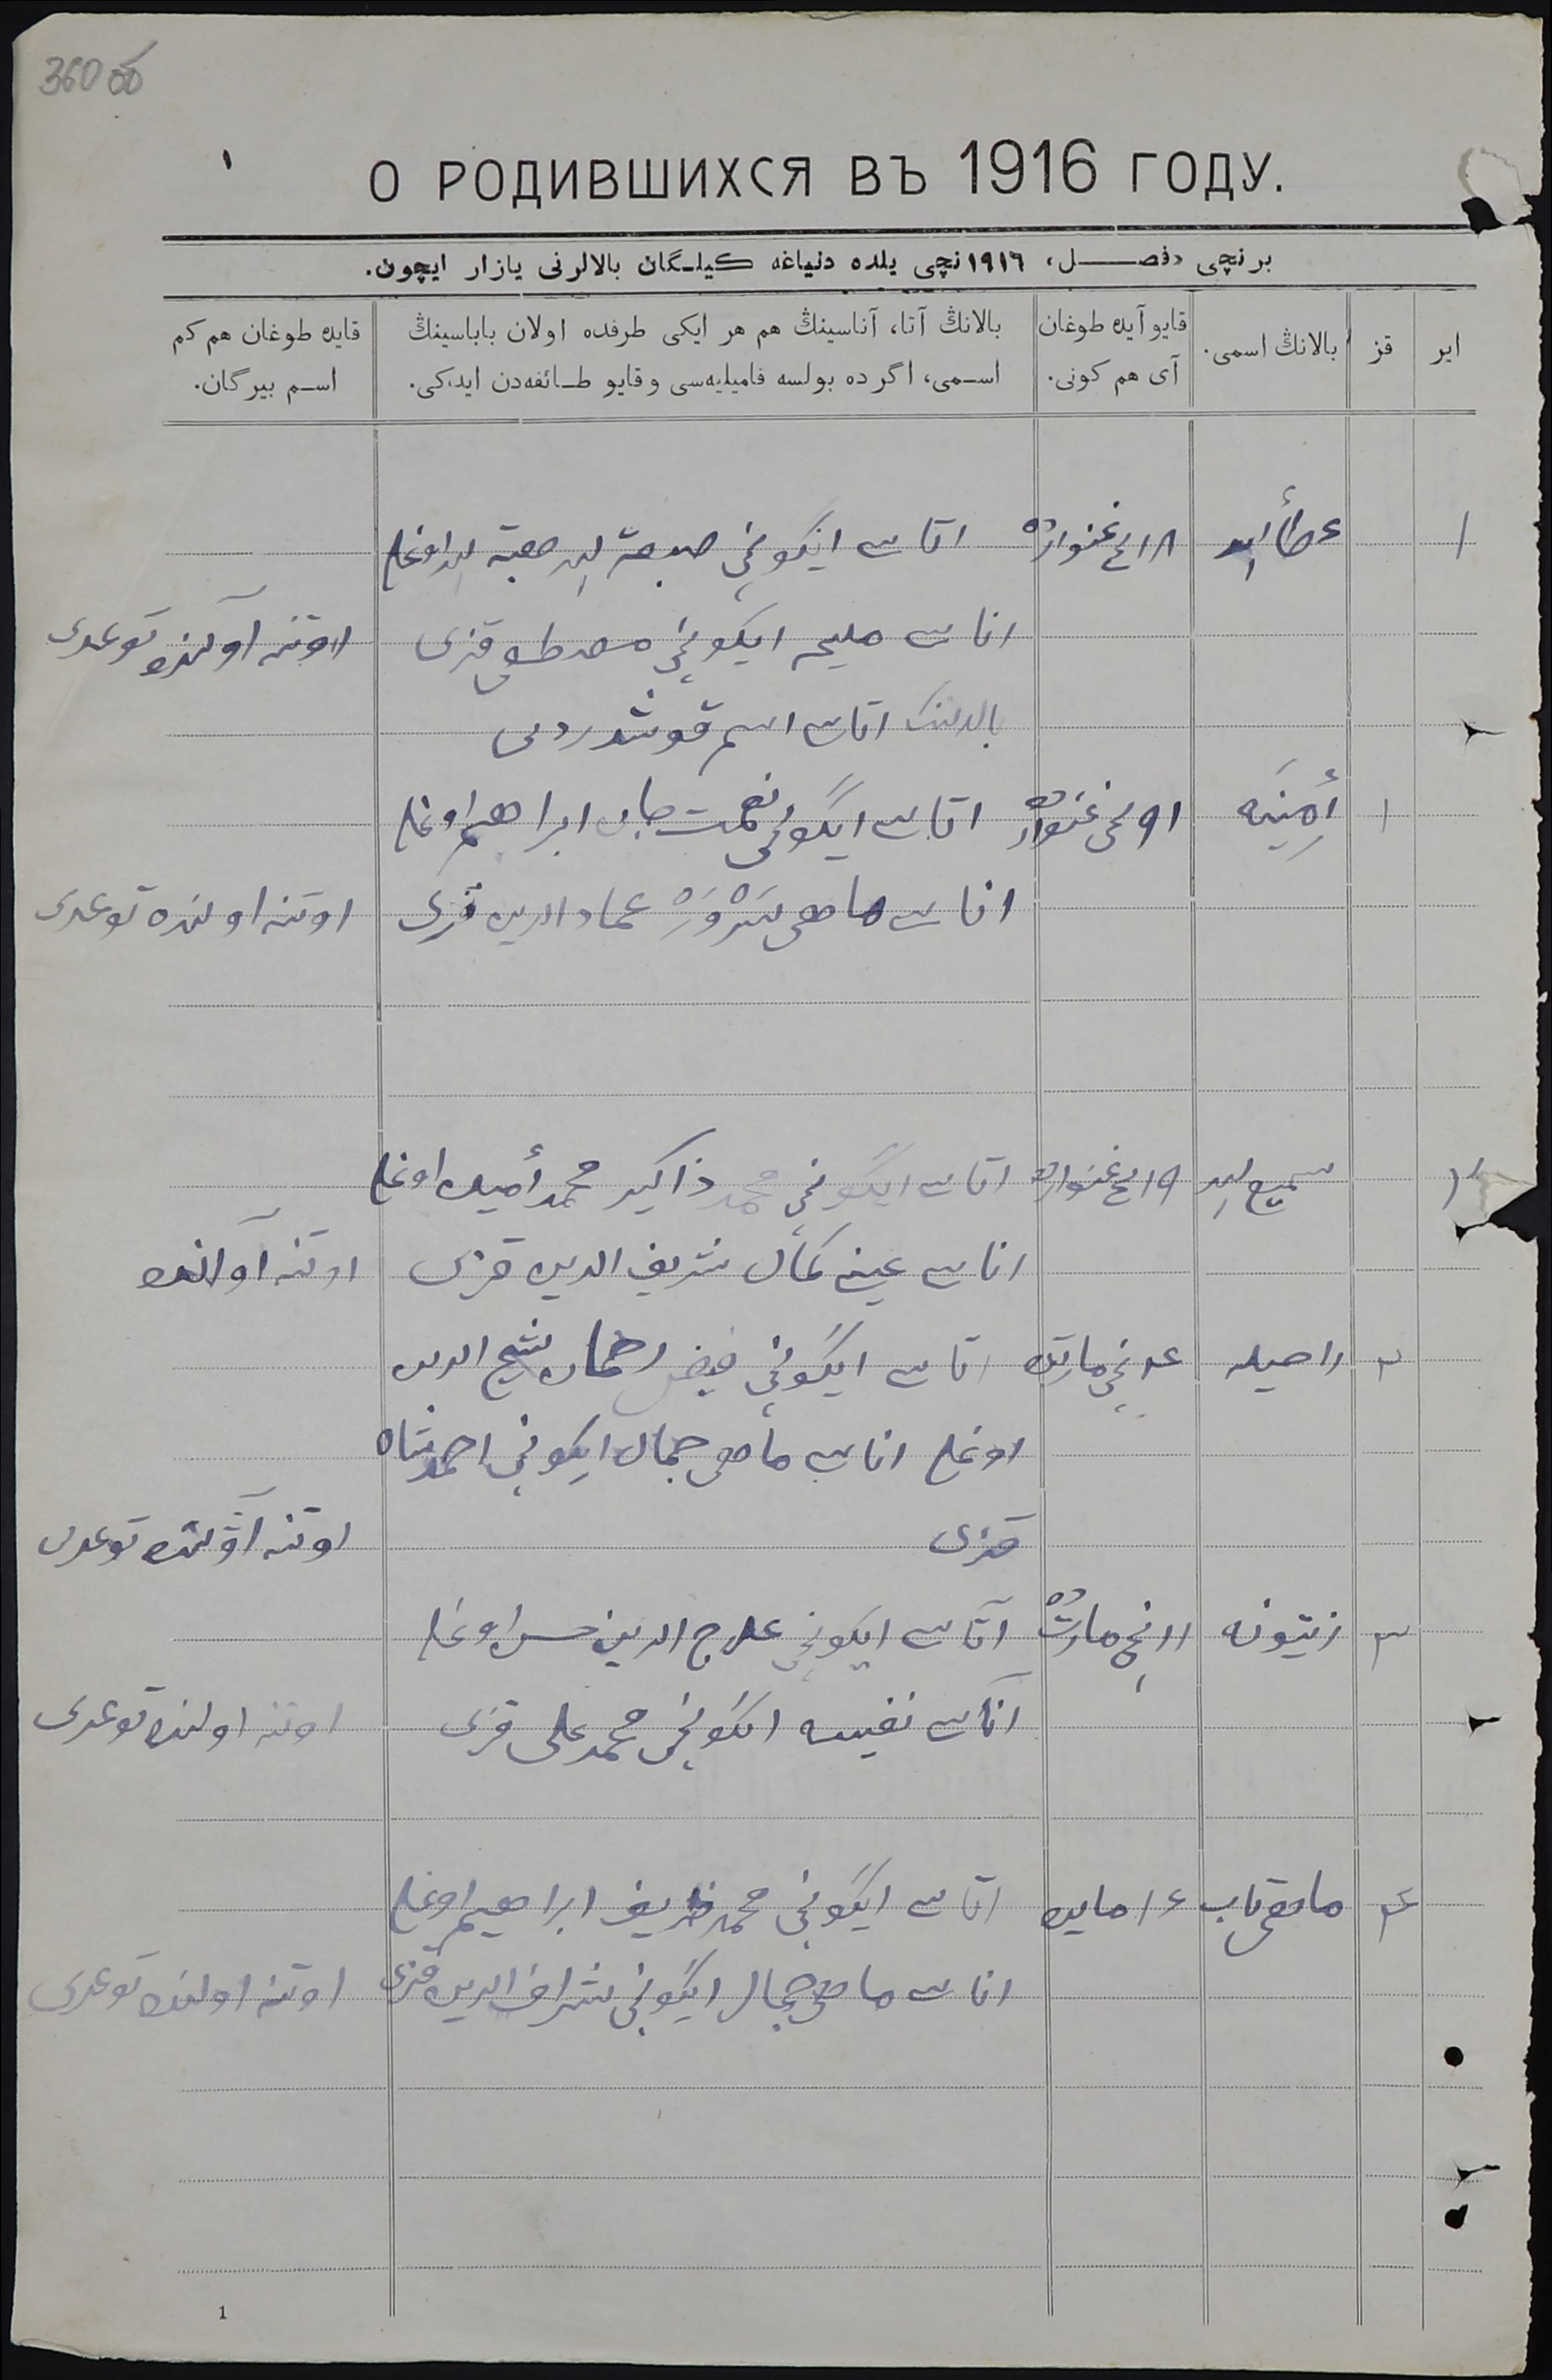 360 об
О РОДИВШИХСЯ ВЪ 1916 ГОДУ.
برنچی «فصـــل، ١٩١٦نچی يلده دنياغه كيلـگان بالالرنی يازار ايچون.
اير
قز
بالانڭ اسمی.
قايو آيده طوغان
آی هم كونی.
بالانڭ آتا، آناسينڭ هم هر ايكی طرفده اولان باباسينڭ
اسـمی، اگر ده بولسه فاميليه‌سی و قايو طـائفه‌دن ايدىكی.
قايده طوغان هم كم
اسـم بيرگان.
١ عطأالله ١٨نچی غنوارده اتاسی ايكونچی صبغة الله اوغلی
اناسی مليحه ايكونچی قزی
اتاسی اسم
١ أمينه ١٩نچی غنوارده اتاسی ايكونچی نعمت جان ابراهيم اوغلی
اناسی ماهی سرور عماد الدين قزی اوتنه اولنده توغدی
٢ سميع الله ١٩نچی غنوارده اتاسی ايكونچی محمد ذاكير محمد أمين اوغلی
اناسی عينی كمال شريف الدين قزی اوتنه آولنده
٢ راحيله ٤نچی مارتده اتاسی ايكونچی فيض رحمان شيخ الدين
اوغلی اناسی ماهی جمال ايكونچی احمدشاه
قزی اوتنه آولنده توغدی
٣ زيتونه ١١نچی مارتده آتاسی ايكونچی علاج الدين حسن اوغلی
اناسی نفيسه ايكونچی محمد علی قزی اوتنه اولنده توغدی
٤ ماهی تاب ١٤ مايده اتاسی ايكونچی محمد ظريف ابراهيم اوغلی
اناسی ماهی جمال ايكونچی شراف الدين قزی اوتنه اولنده توغدی
1